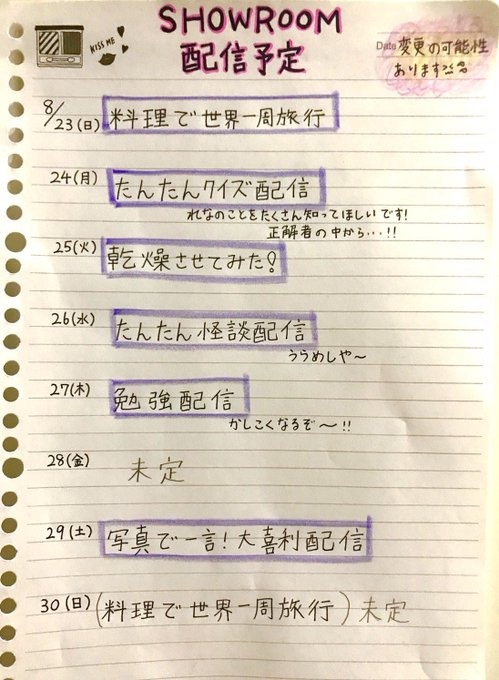 SHOWROOM
配信予定
KISS ME
Date 変更の可能性
あります
8/23(日) 料理で世界一周旅行
24(月) たんたんクイズ配信
れなのことをたくさん知ってほしいです!
正解者の中から…!!
25(火) 乾燥させてみた!
26(水) たんたん怪談配信
うらめしや〜
27(木) 勉強配信
かしこくなるぞ〜!!
28(金) 未定
29(土) 写真で一言!大喜利配信
30(日) (料理で世界一周旅行) 未定